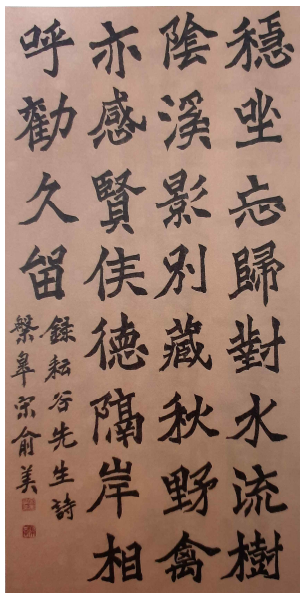 穩坐忘歸對水流樹
陰溪影別藏秋野禽
亦感賢侯德隔岸相
呼勸久留
錄耘谷先生詩
皋宋俞美